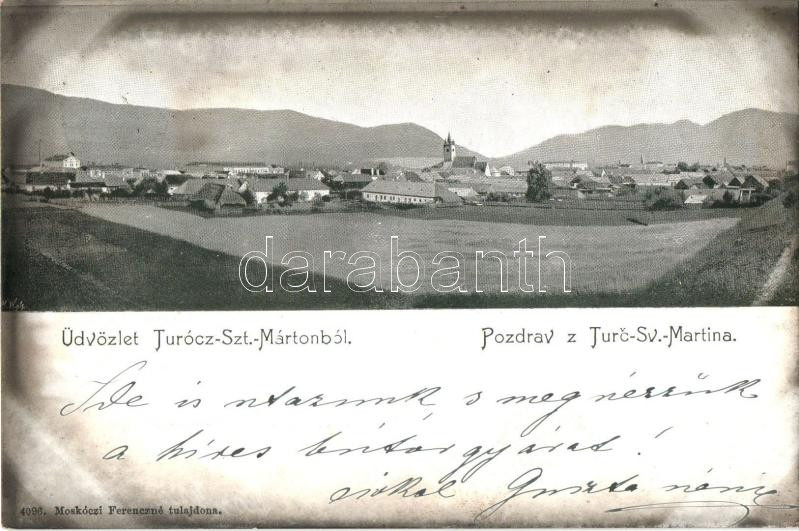 darabanth
Üdvözlet Turócz-Szt.-Mártonból.
Pozdrav z Turč-Sv.-Martina.
Ide is utazunk, s megnézzük
a híres bútorgyárat!
csókol Guszta néni
4096. Moskóczi Ferenczné tulajdona.